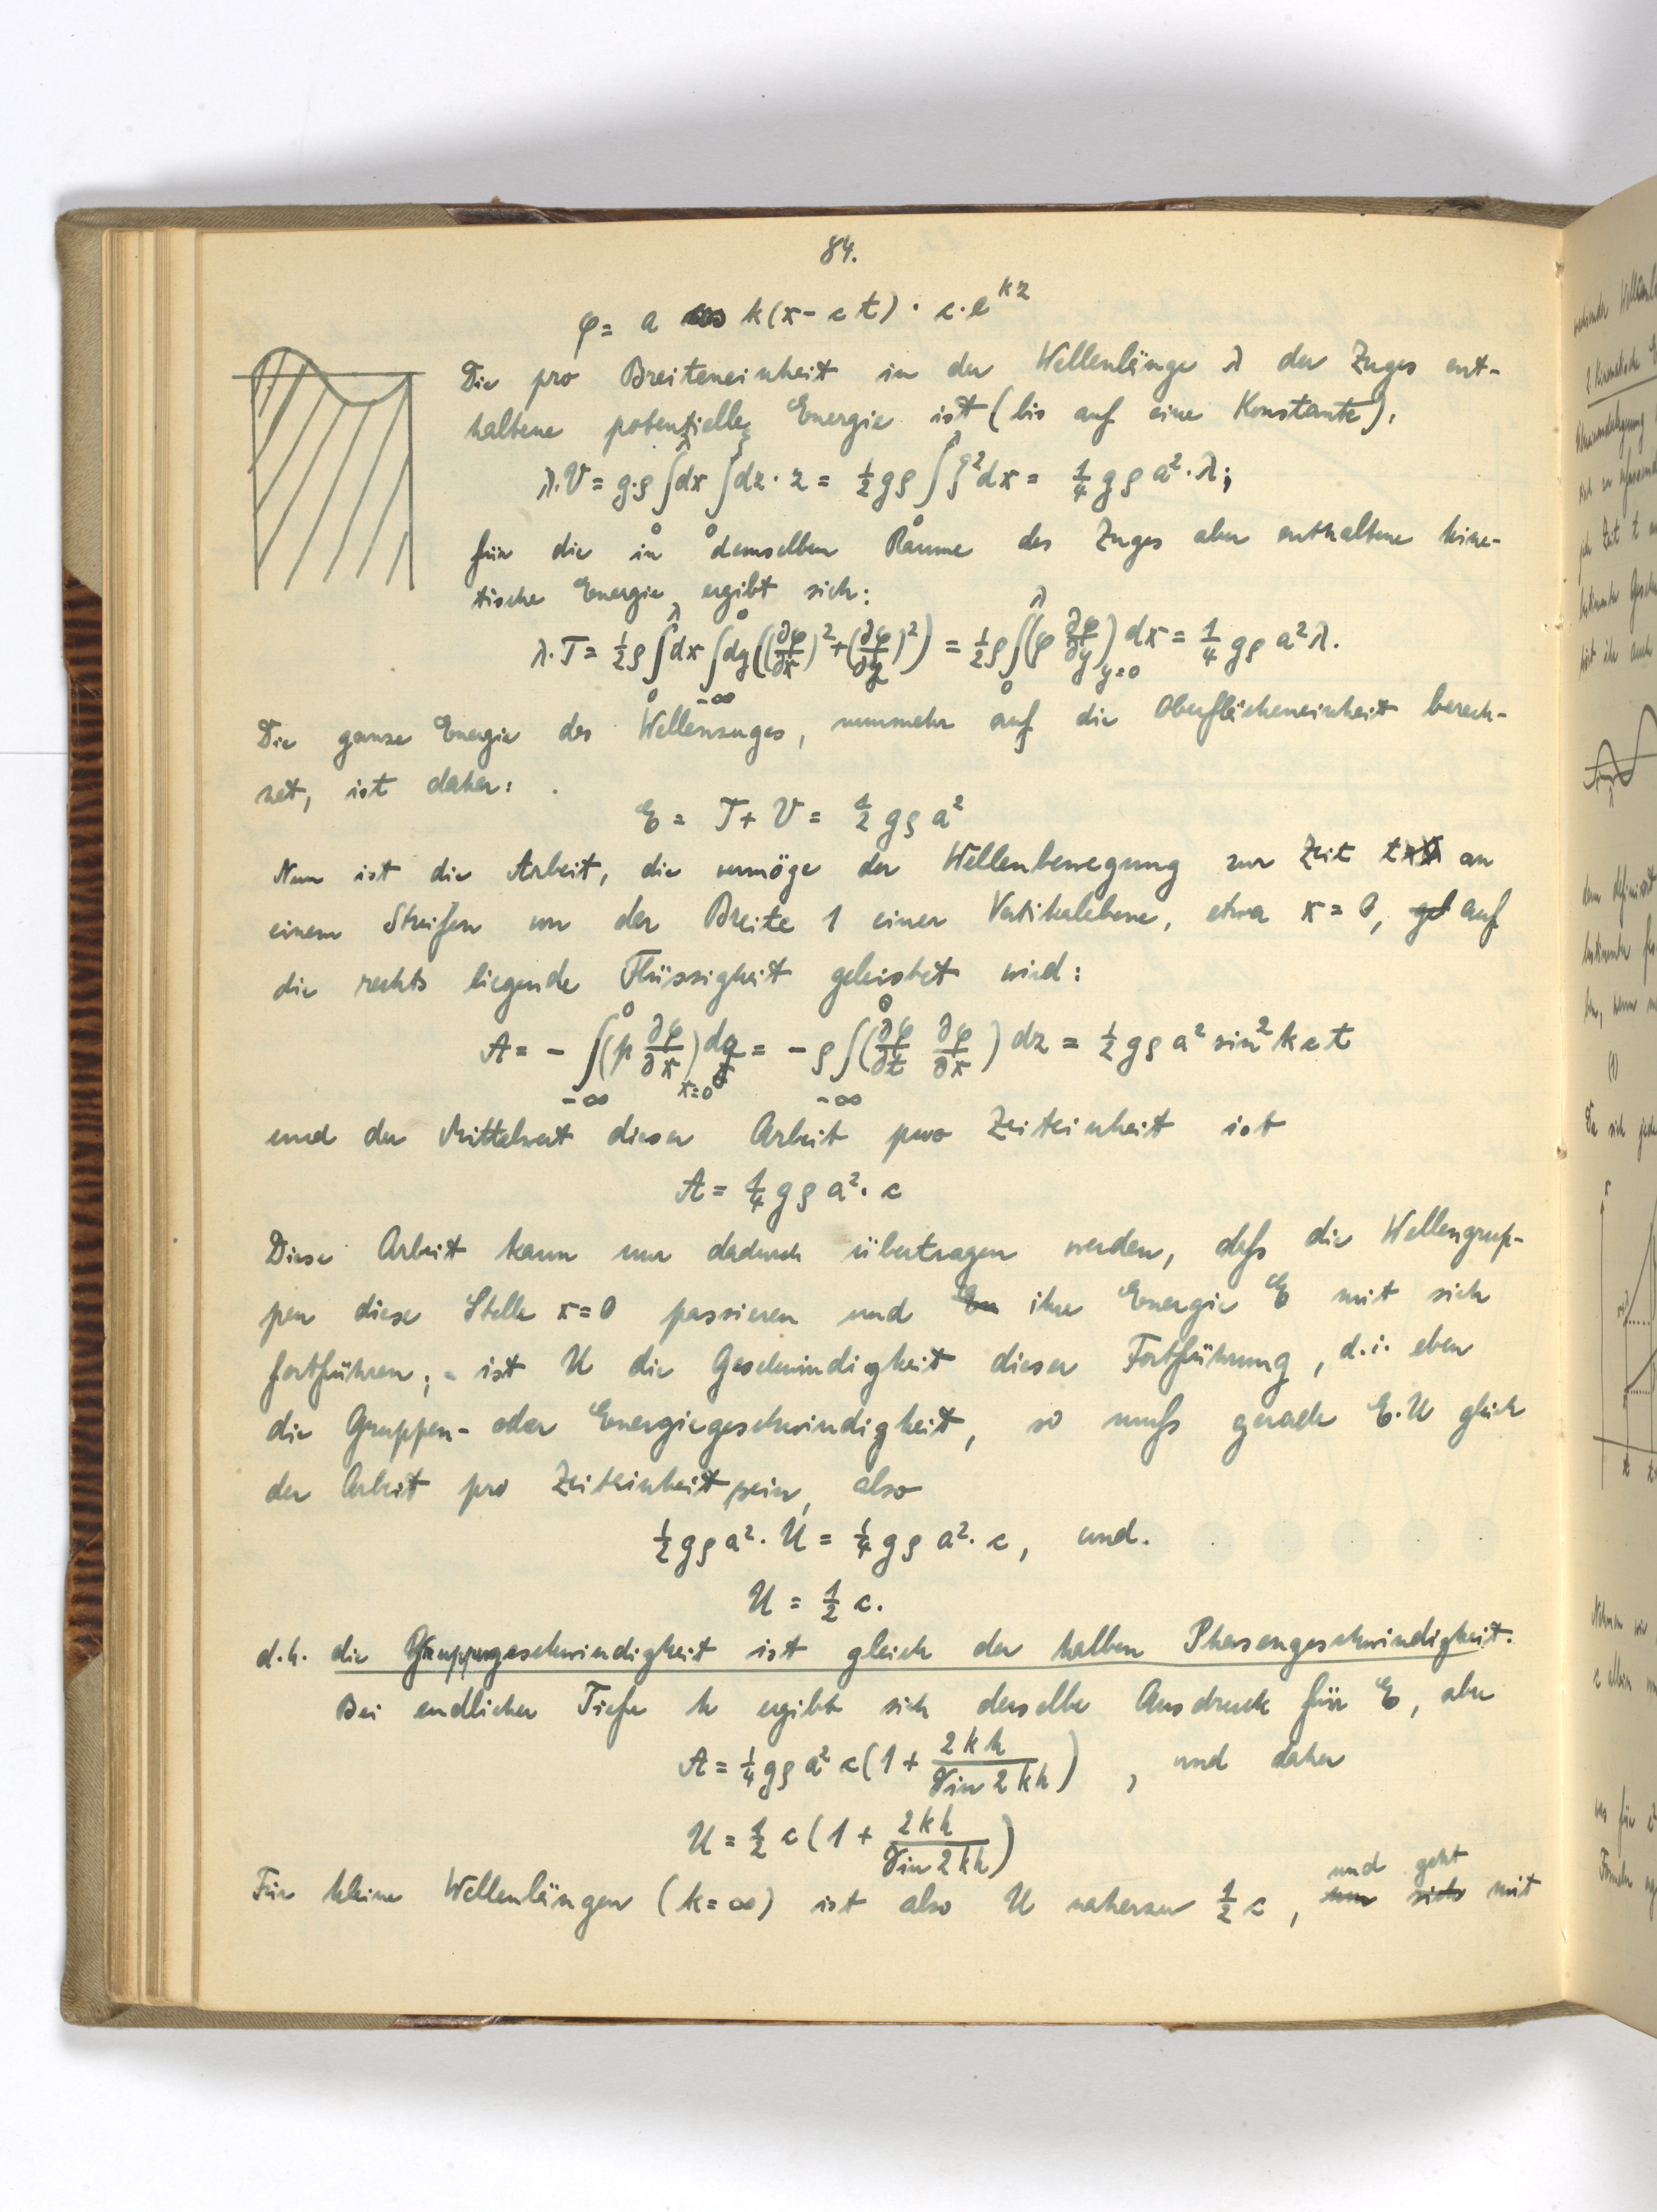 84.
φ = a cos k(x - ct) · c · e^{kz}
Die pro Breiteneinheit in der Wellenlänge λ der Zuges ent-
haltene potentielle Energie ist (bis auf eine Konstante):
λ·V = g·ρ ∫_0^λ dx ∫_0^ζ dz · z = ½ gρ ∫_0^λ ζ² dx = ¼ gρ a² · λ;
für die in demselben Raume des Zuges aber enthaltene kine-
tische Energie ergibt sich:
λ·T = ½ρ ∫_0^λ dx ∫_{-∞}^0 dy ((∂φ/∂x)² + (∂φ/∂z)²) = ½ρ ∫_0^λ (φ ∂φ/∂y)_{y=0} dx = ¼ gρ a² λ.
Die ganze Energie des Wellenzuges, nunmehr auf die Oberflächeneinheit berech-
net, ist daher:
E = T + V = ½ gρ a²
Nun ist die Arbeit, die vermöge der Wellenbewegung zur Zeit t an
einem Streifen von der Breite 1 einer Vertikalebene, etwa x = 0, auf
die rechts liegende Flüssigkeit geleistet wird:
A = - ∫_{-∞}^0 (p ∂φ/∂x)_{x=0} dz = - ρ ∫_{-∞}^0 (∂φ/∂t ∂φ/∂x) dz = ½ gρ a² sin² kct
und der Mittelwert dieser Arbeit pro Zeiteinheit ist
A = ¼ gρ a² · c
Diese Arbeit kann nur dadurch übertragen werden, daſs die Wellengrup-
pen diese Stelle x = 0 passieren und ihre Energie E mit sich
fortführen; - ist U die Geschwindigkeit dieser Fortführung, d.i. eben
die Gruppen- oder Energiegeschwindigkeit, so muſs gerade E·U gleich
der Arbeit pro Zeiteinheit sein, also
½ gρ a² · U = ¼ gρ a² · c, und.
U = ½ c.
d.h. die Gruppengeschwindigkeit ist gleich der halben Phasengeschwindigkeit.
Bei endlicher Tiefe h ergibt sich derselbe Ausdruck für E, aber
A = ¼ gρ a² c (1 + 2kh / Sin 2kh), und daher
U = ½ c (1 + 2kh / Sin 2kh)
Für kleine Wellenlängen (k = ∞) ist also U nahezu ½ c, und geht mit